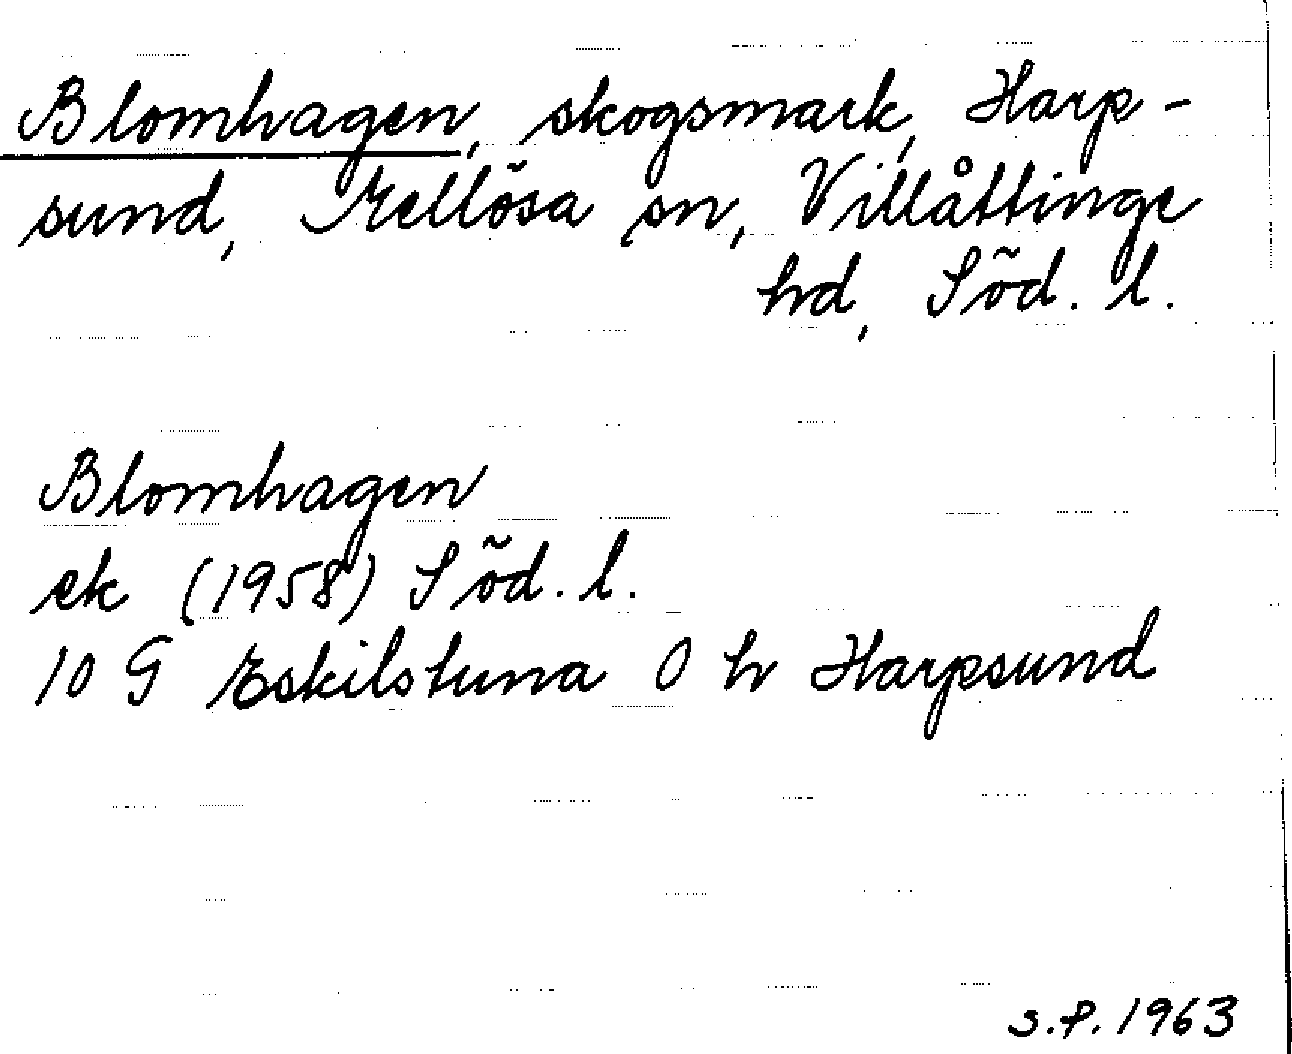 Blomhagen, skogsmark, Harp-
sund, Mellösa sn, Villåttinge
hd, Söd. l.
Blomhagen
ek (1958) Söd. l.
10 G Eskilstuna 0 h Harpsund
s.f. 1963